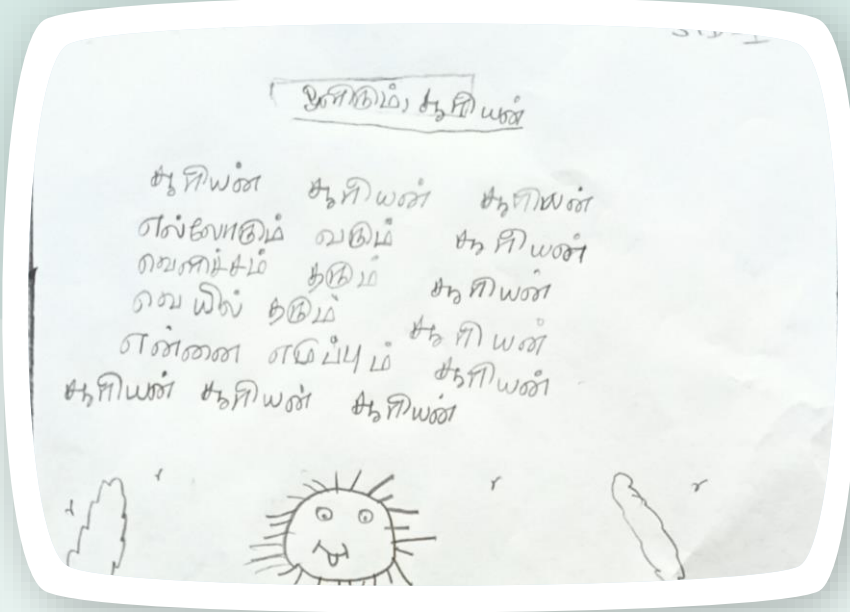 ஒளிரும் சூரியன்
சூரியன் சூரியன் சூரியன்
எல்லோரும் வரும் சூரியன்
வெளிச்சம் தரும் சூரியன்
வெயில் தரும் சூரியன்
என்னை எழுப்பும் சூரியன்
சூரியன் சூரியன் சூரியன்